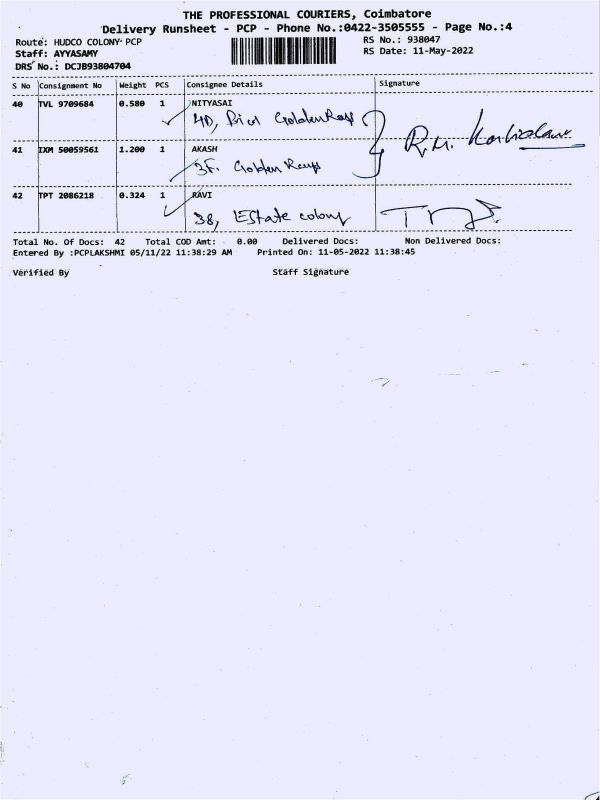 THE PROFESSIONAL COURIERS, Coimbatore
Delivery Runsheet - PCP - Phone No.:0422-3505555 - Page No.:4
Route: HUDCO COLONY PCP
RS No.: 938047
Staff: AYYASAMY
RS Date: 11-May-2022
DRS No.: DCJB93804704
S No Consignment No Weight PCS Consignee Details Signature
40 TVL 9709684 0.580 1 NITYASAI
4D, GoldenRays
41 IXM 50059561 1.200 1 AKASH
3F. Golden Rays
42 TPT 2086218 0.324 1 RAVI
38, Estate colony
Total No. Of Docs: 42 Total COD Amt: 0.00 Delivered Docs: Non Delivered Docs:
Entered By :PCPLAKSHMI 05/11/22 11:38:29 AM Printed On: 11-05-2022 11:38:45
Verified By Staff Signature